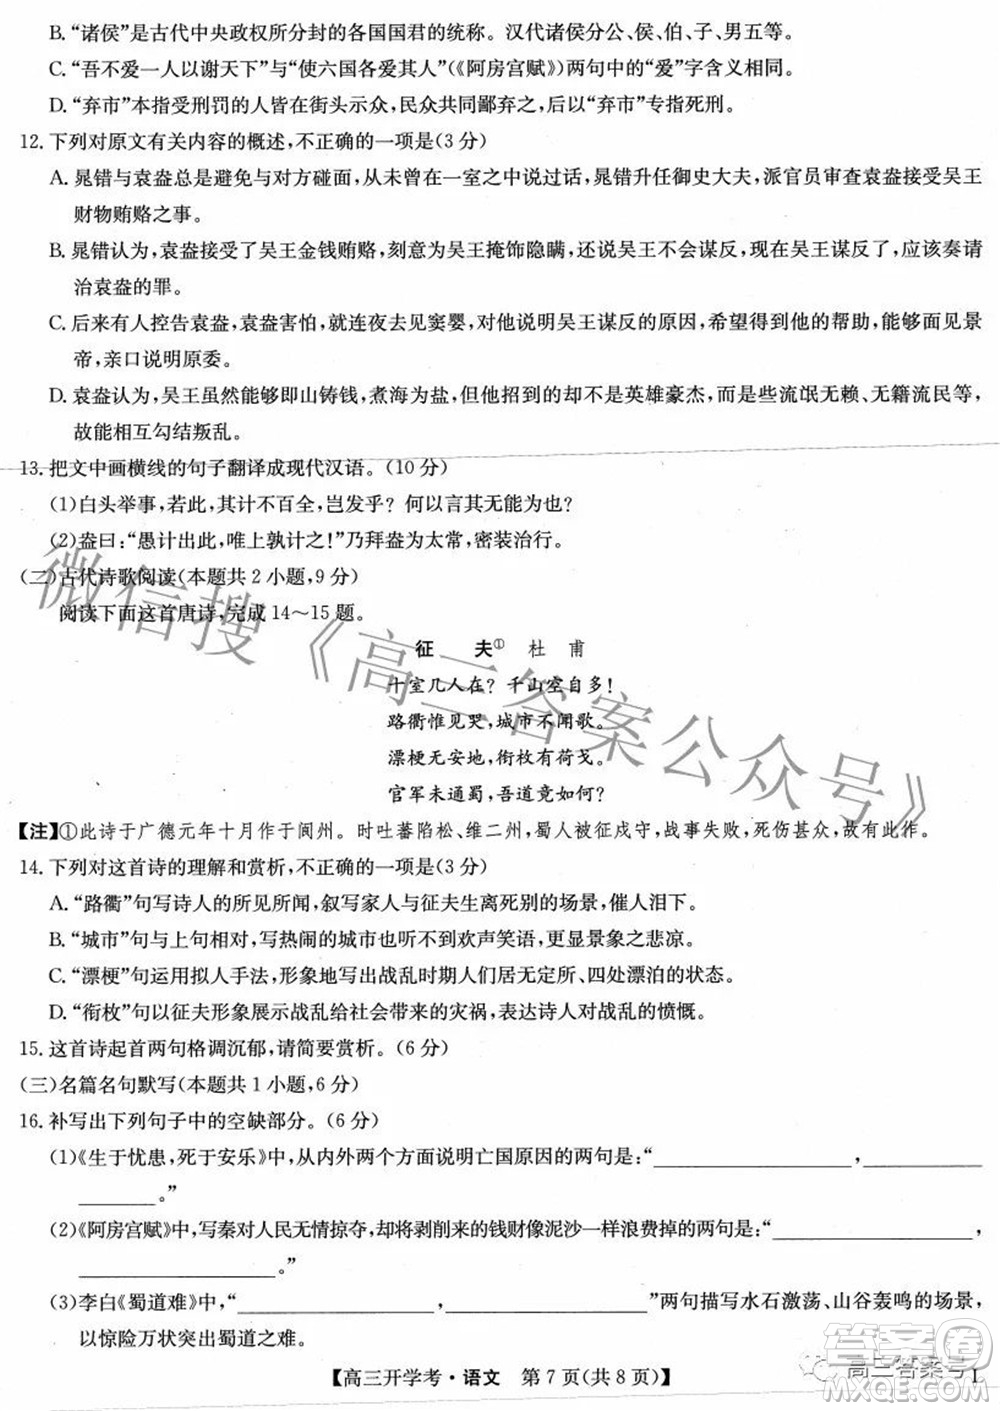 B.“诸侯”是古代中央政权所分封的各国国君的统称。汉代诸侯分公、侯、伯、子、男五等。
C.“吾不爱一人以谢天下”与“使六国各爱其人”(《阿房宫赋》)两句中的“爱”字含义相同。
D.“弃市”本指受刑罚的人皆在街头示众,民众共同鄙弃之,后以“弃市”专指死刑。
12.下列对原文有关内容的概述,不正确的一项是(3分)
A.晁错与袁盎总是避免与对方碰面,从未曾在一室之中说过话,晁错升任御史大夫,派官员审查袁盎接受吴王
财物贿赂之事。
B.晁错认为,袁盎接受了吴王金钱贿赂,刻意为吴王掩饰隐瞒,以至说吴王不会谋反,现在吴王谋反了,应该奏请
治袁盎的罪。
C.后来有人控告袁盎,袁盎害怕,就连夜去见窦婴,对他说明吴王谋反的原因,希望得到他的帮助,能够面见景
帝,亲口说明原委。
D.袁盎认为,吴王虽然能够即山铸钱,煮海为盐,但招来的人都不是英雄豪杰,而是一些流氓无赖、无籍流浪者,
故能相互勾结叛乱。
13.把文中画横线的句子翻译成现代汉语。(10分)
(1)白头举事,若此,其计不百全,岂发乎?何以言其无能为也?
(2)盎曰:“愚计出此,唯上孰计之!”乃拜盎为太常,密装治行。
(二)古代诗歌阅读(本题共2小题,9分)
阅读下面这首唐诗,完成14～15题。
征 夫① 杜 甫
十室几人在?千山空自多!
路衢惟见哭,城市不闻歌。
漂梗无安地,衔枚有荷戈。
官军未通蜀,吾道竟如何?
【注】①此诗于广德元年十月作于阆州。时吐蕃陷松、维二州,蜀人被征戍守,战事失败,死伤甚众,故有此作。
14.下列对这首诗的理解和赏析,不正确的一项是(3分)
A.“路衢”句写诗人的所见所闻,叙写家人与征夫生离死别的场景,催人泪下。
B.“城市”句与上句相对,写热闹的城市都听不到欢声笑语,更显景象之悲凉。
C.“漂梗”句运用拟人手法,形象地写出战乱中人民居无定所、四处漂泊的状态。
D.“衔枚”句以征夫形象展示战乱给社会带来的灾祸,表达了诗人对战乱的愤慨。
15.这首诗起首两句格调沉郁,请简要赏析。(6分)
(三)名篇名句默写(本题共1小题,6分)
16.补写出下列句子中的空缺部分。(6分)
(1)《生于忧患,死于安乐》中,从内外两个方面说明亡国原因的两句是:“__________,
__________。”
(2)《阿房宫赋》中,写秦对人民无情掠夺,却将剥削来的钱财像泥沙一样浪费掉的两句是:“__________,
__________。”
(3)李白《蜀道难》中,“__________,__________”两句描写水石激荡、山谷轰鸣的场景,
以惊险万状突出蜀道之难。
【高三开学考·语文 第7页(共8页)】 L
微信搜《高三答案公众号》
高三答案号
答案圈
MXQE.COM